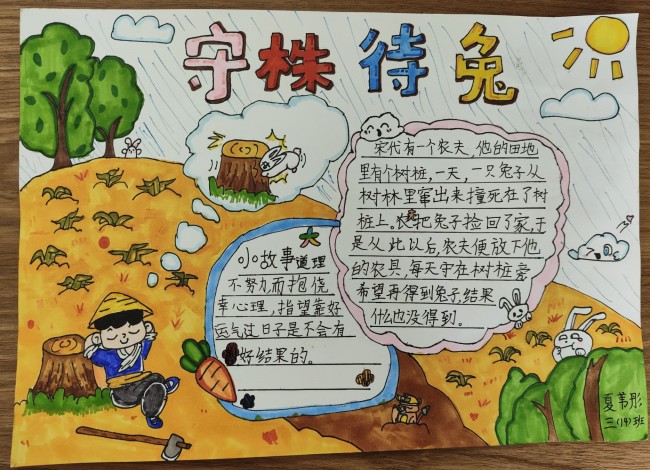 守株待兔
宋代有一个农夫,他的田地
里有个树桩,一天,一只兔子从
树林里窜出来撞死在了树
桩上。农把兔子捡回了家,于
是从此以后,农夫便放下他
的农具,每天守在树桩旁
希望再得到兔子,结果
什么也没得到。
小故事道理
不努力而抱侥
幸心理,指望靠好
运气过日子是不会有
好结果的。
夏苇彤
三(14)班